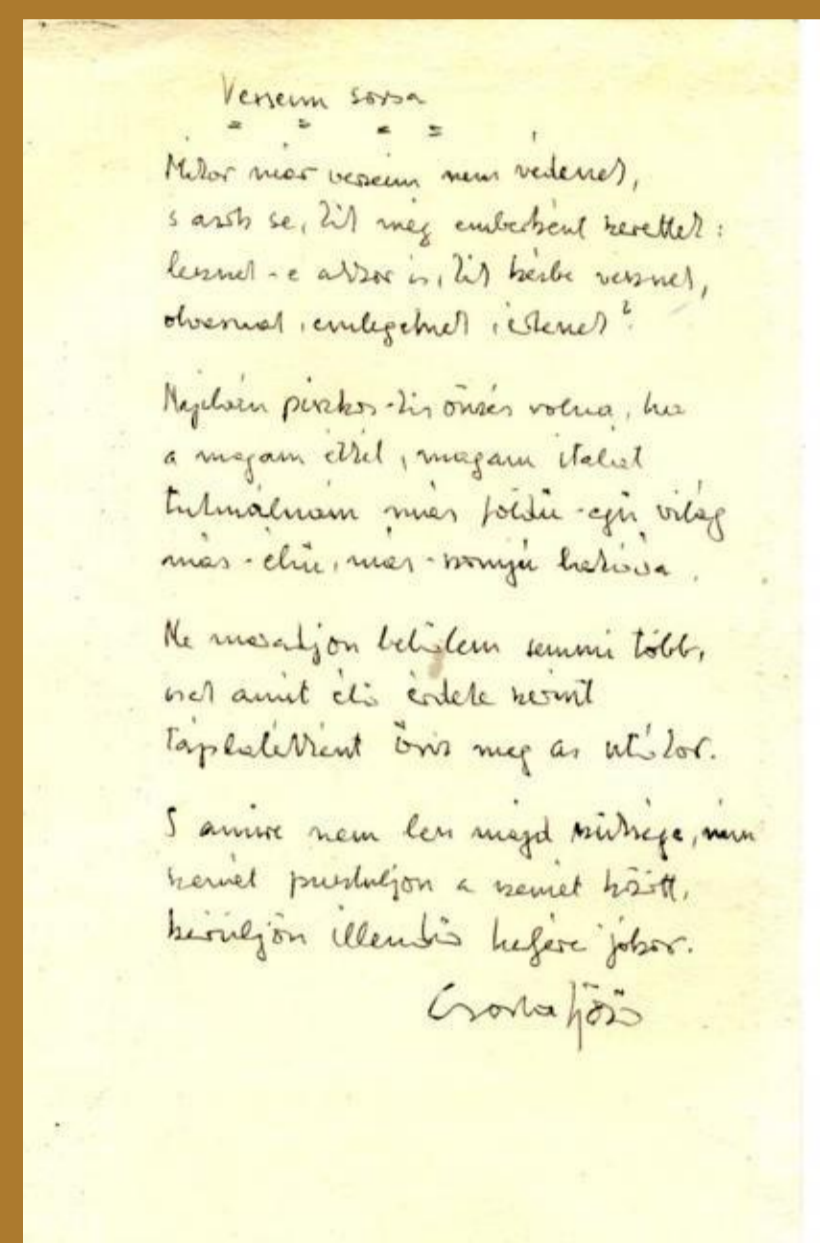 Verseim sorsa
Mikor már verseim nem védenek,
s azok se, kik még emberként szerettek:
lesznek-e akkor is, kik kézbe vesznek,
olvasnak, emlegetnek, idéznek?
Nyilván piszkos-kis önzés volna, ha
a magam étkét, magam italát
tukmálnám más földű-egű világ
más-éhű, más-szomjú lakóira.
Ne maradjon belőlem semmi több,
csak amit élő érdeke szerint
táplálékként őriz meg az utókor.
S amire nem lesz majd szüksége, mint
szemét pusztuljon a szemét között,
kerüljön illendő helyére jókor.
Csorba Győző